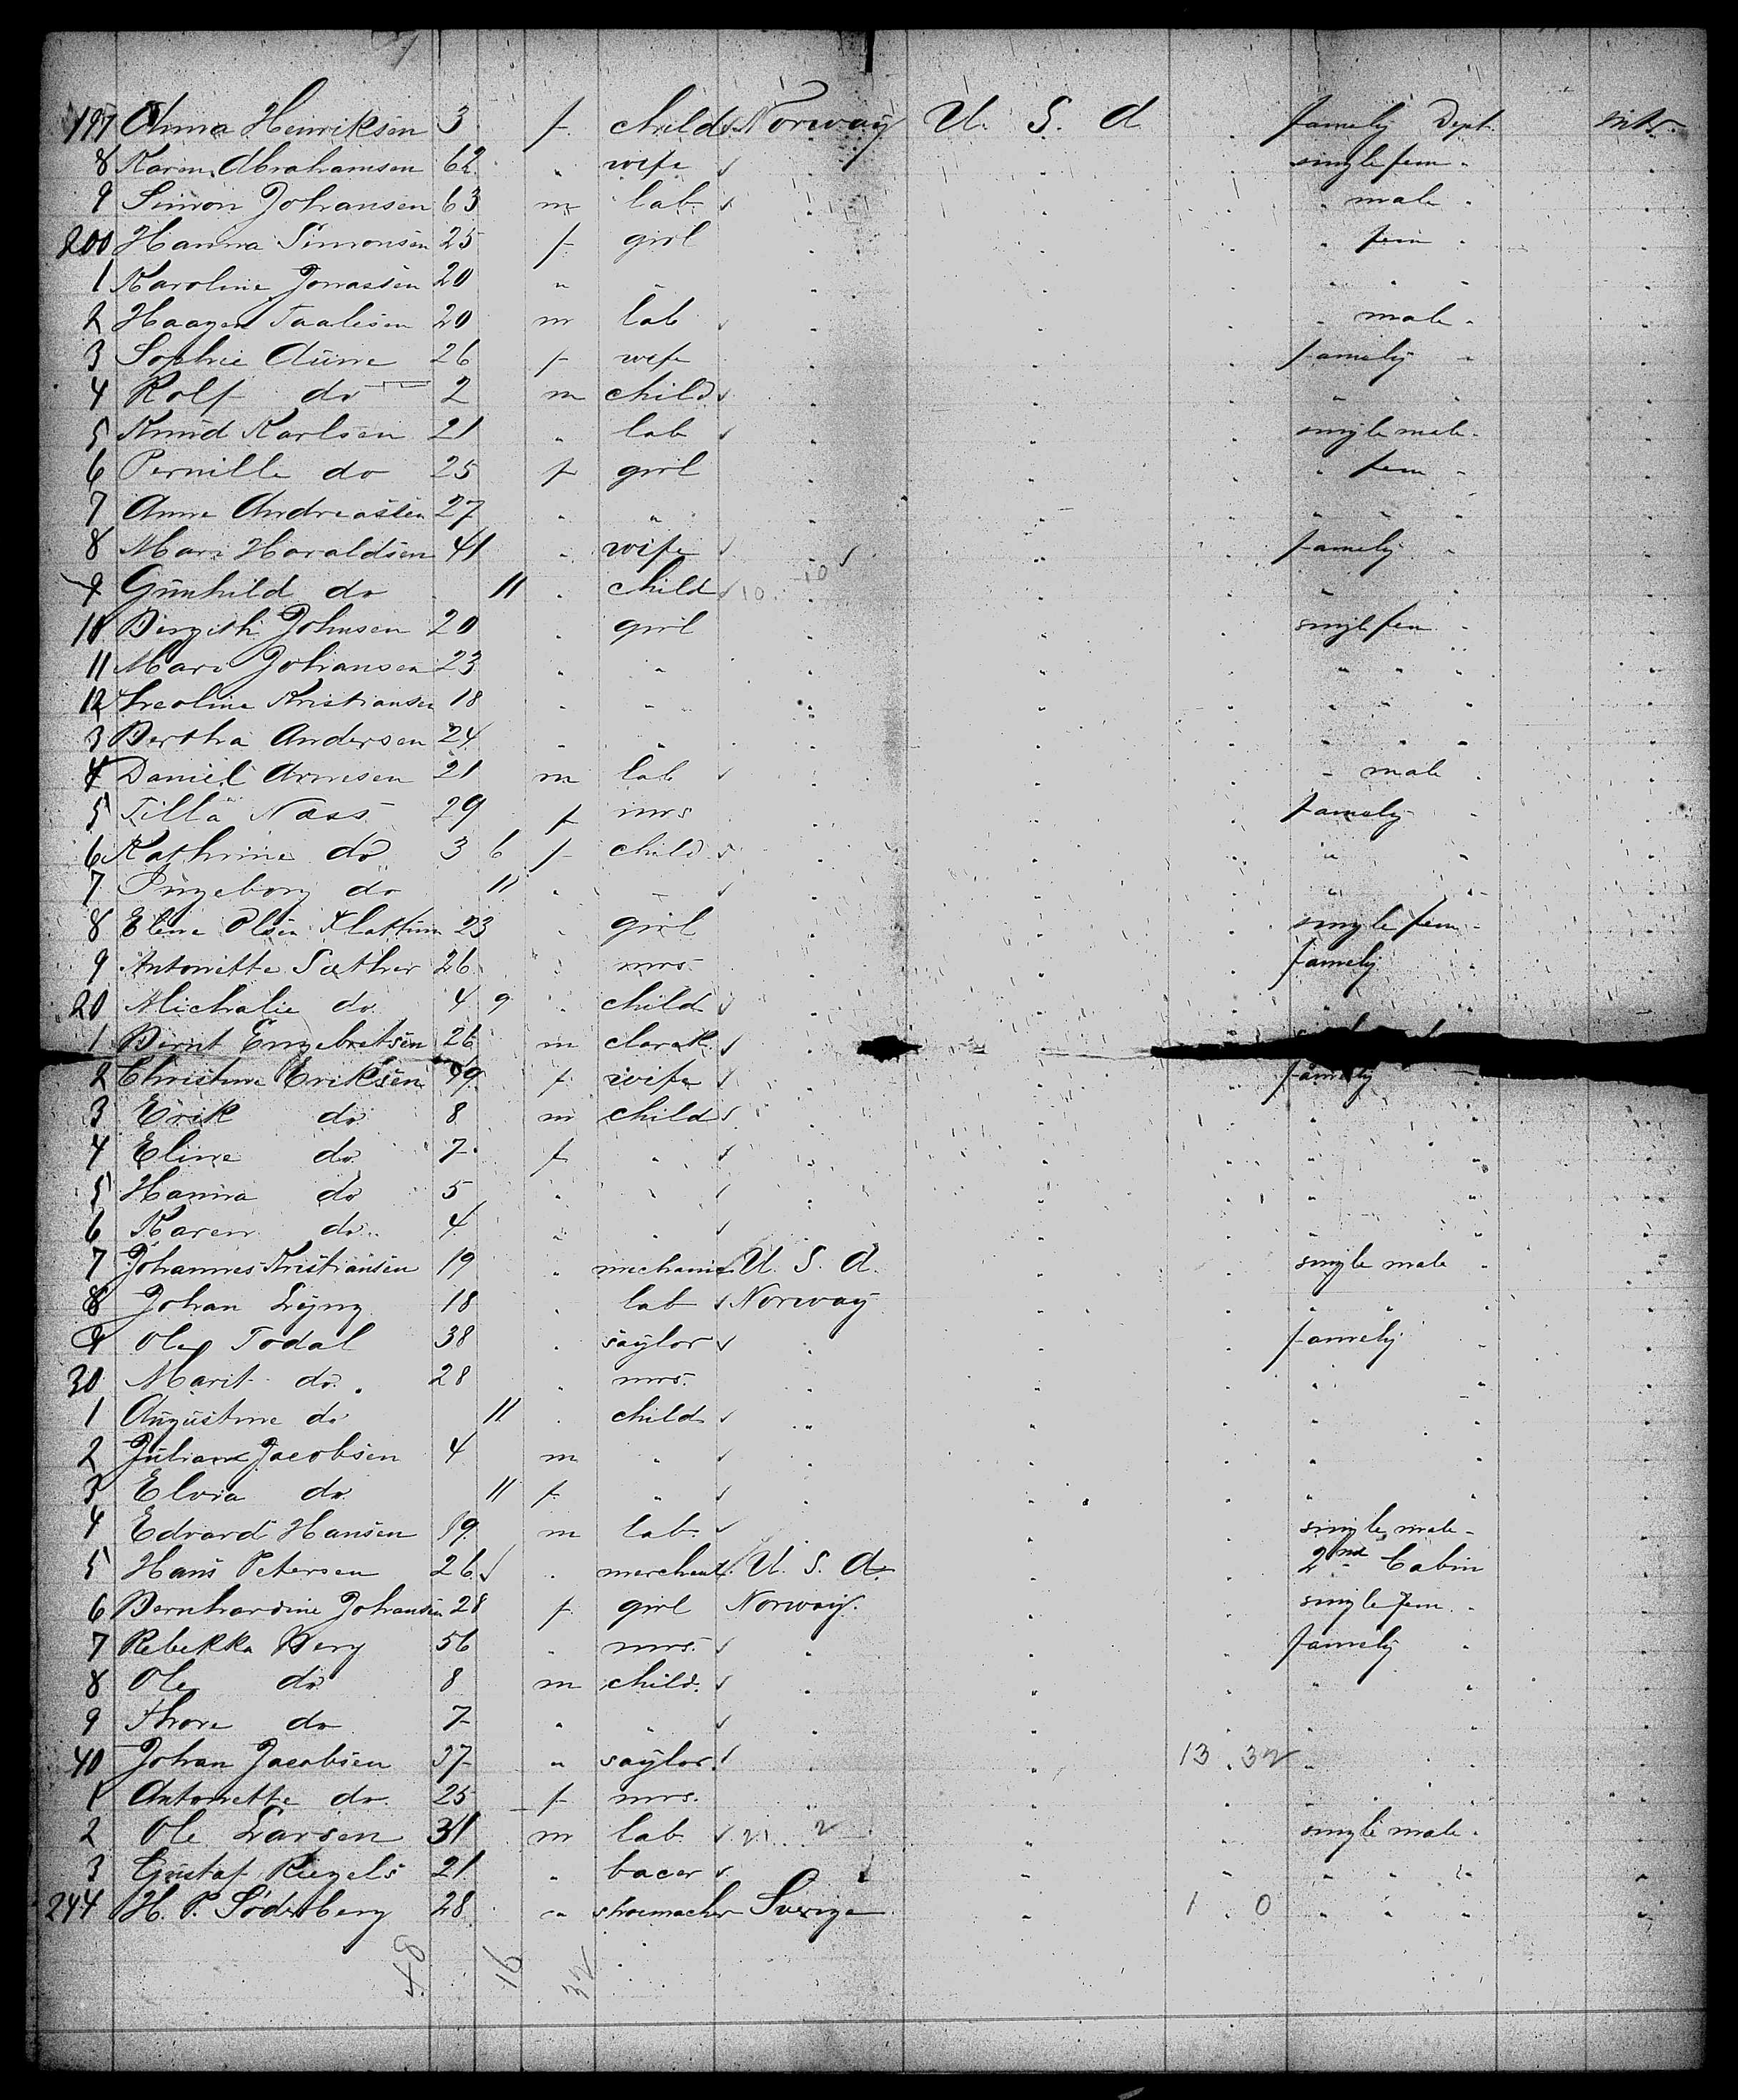 197 Anna Henriksen 3 f child Norway U. S. A famely Dept.
8 Karen Abrahamsen 62 " wife single fem "
9 Simon Johansen 63 m lab " male "
200 Hanna Simonsen 25 f girl " fem "
1 Karoline Jonassen 20 " " " " "
2 Haagen Taalesen 20 m lab " male "
3 Sophie Aune 26 f wife famely "
4 Rolf do 2 m child " "
5 Knud Karlsen 21 " lab single male "
6 Pernille do 25 f girl " fem "
7 Anne Andreassen 27 " " " " "
8 Mari Haraldsen 41 " wife famely "
9 Gunhild do 11 " child 10 10 "
10 Bergith Johnsen 20 " girl single fem "
11 Mari Johansen 23 " " " " "
12 Kristiansen 18 " " " " "
3 Bertha Andersen 24 " " " " "
4 Daniel Arnesen 21 m lab " male "
5 Tilla Næss 29 f mrs famely
6 Kathrine do 3 6 f child " "
7 Ingeborg do 11 " " " "
8 Eline Olsen 23 " girl single fem "
9 Antonette Sæther 26 " mrs famely
20 Michalie do 4 9 " child "
1 Bernt Engebretsen 26 m clerak
2 Christine Eriksen 49 f wife famely
3 Erik do 8 m child " "
4 Eline do 7 f " " "
5 Hanna do 5 " " " "
6 Karen do 4 " " " "
7 Johannes Kristiansen 19 " mechanic U. S. A. single male "
8 Johan Lyng 18 " lab Norway " " "
9 Ole Todal 38 " saylor famely "
30 Marit do 28 " mrs. " "
1 Augustine do 11 " child " "
2 Julian Jacobsen 4 m " " "
3 Elvia do 11 f " " "
4 Edvard Hansen 19 m lab. single male "
5 Hans Petersen 26 " merchent U. S. A. 2nd Cabin
6 Bernhardine Johansen 28 f girl Norway. single fem "
7 Rebekka Berg 56 " mrs. famely "
8 Ole do 8 m child. " "
9 Thore do 7 " " " "
40 Johan Jacobsen 37 " saylor 13 32 " "
1 Antonette do. 25 f mrs. " "
2 Ole Larsen 31 m lab 21 2 single male "
3 Gustaf Riegels 21 " bacer " " "
244 H. P. Söderberg 28 " shoemacher Sverige 1 0 " " "
48 16 32